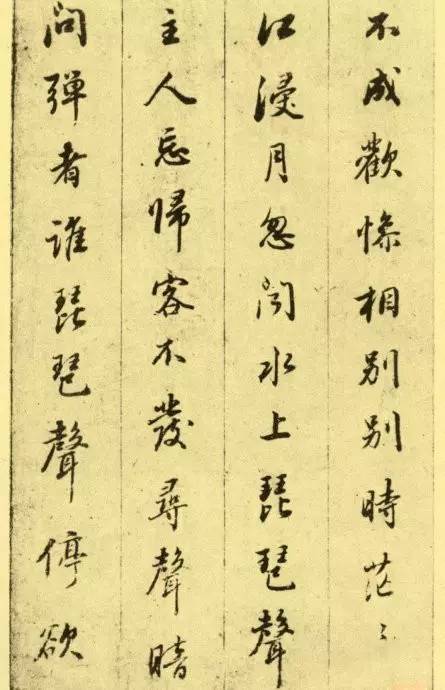 不成歡慘相別別時茫〻
江浸月忽聞水上琵琶聲
主人忘歸客不發尋聲暗
問彈者誰琵琶聲停欲